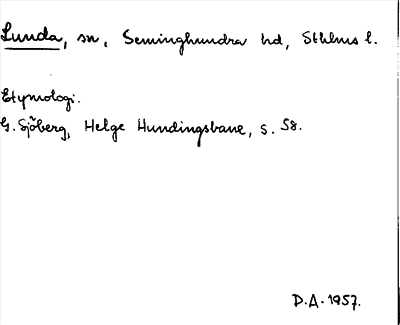 Lunda, sn, Seminghundra hd, Sthlms l.
Etymologi.
G. Sjöberg, Helge Hundingsbane, s. 58.
D.A. 1957.